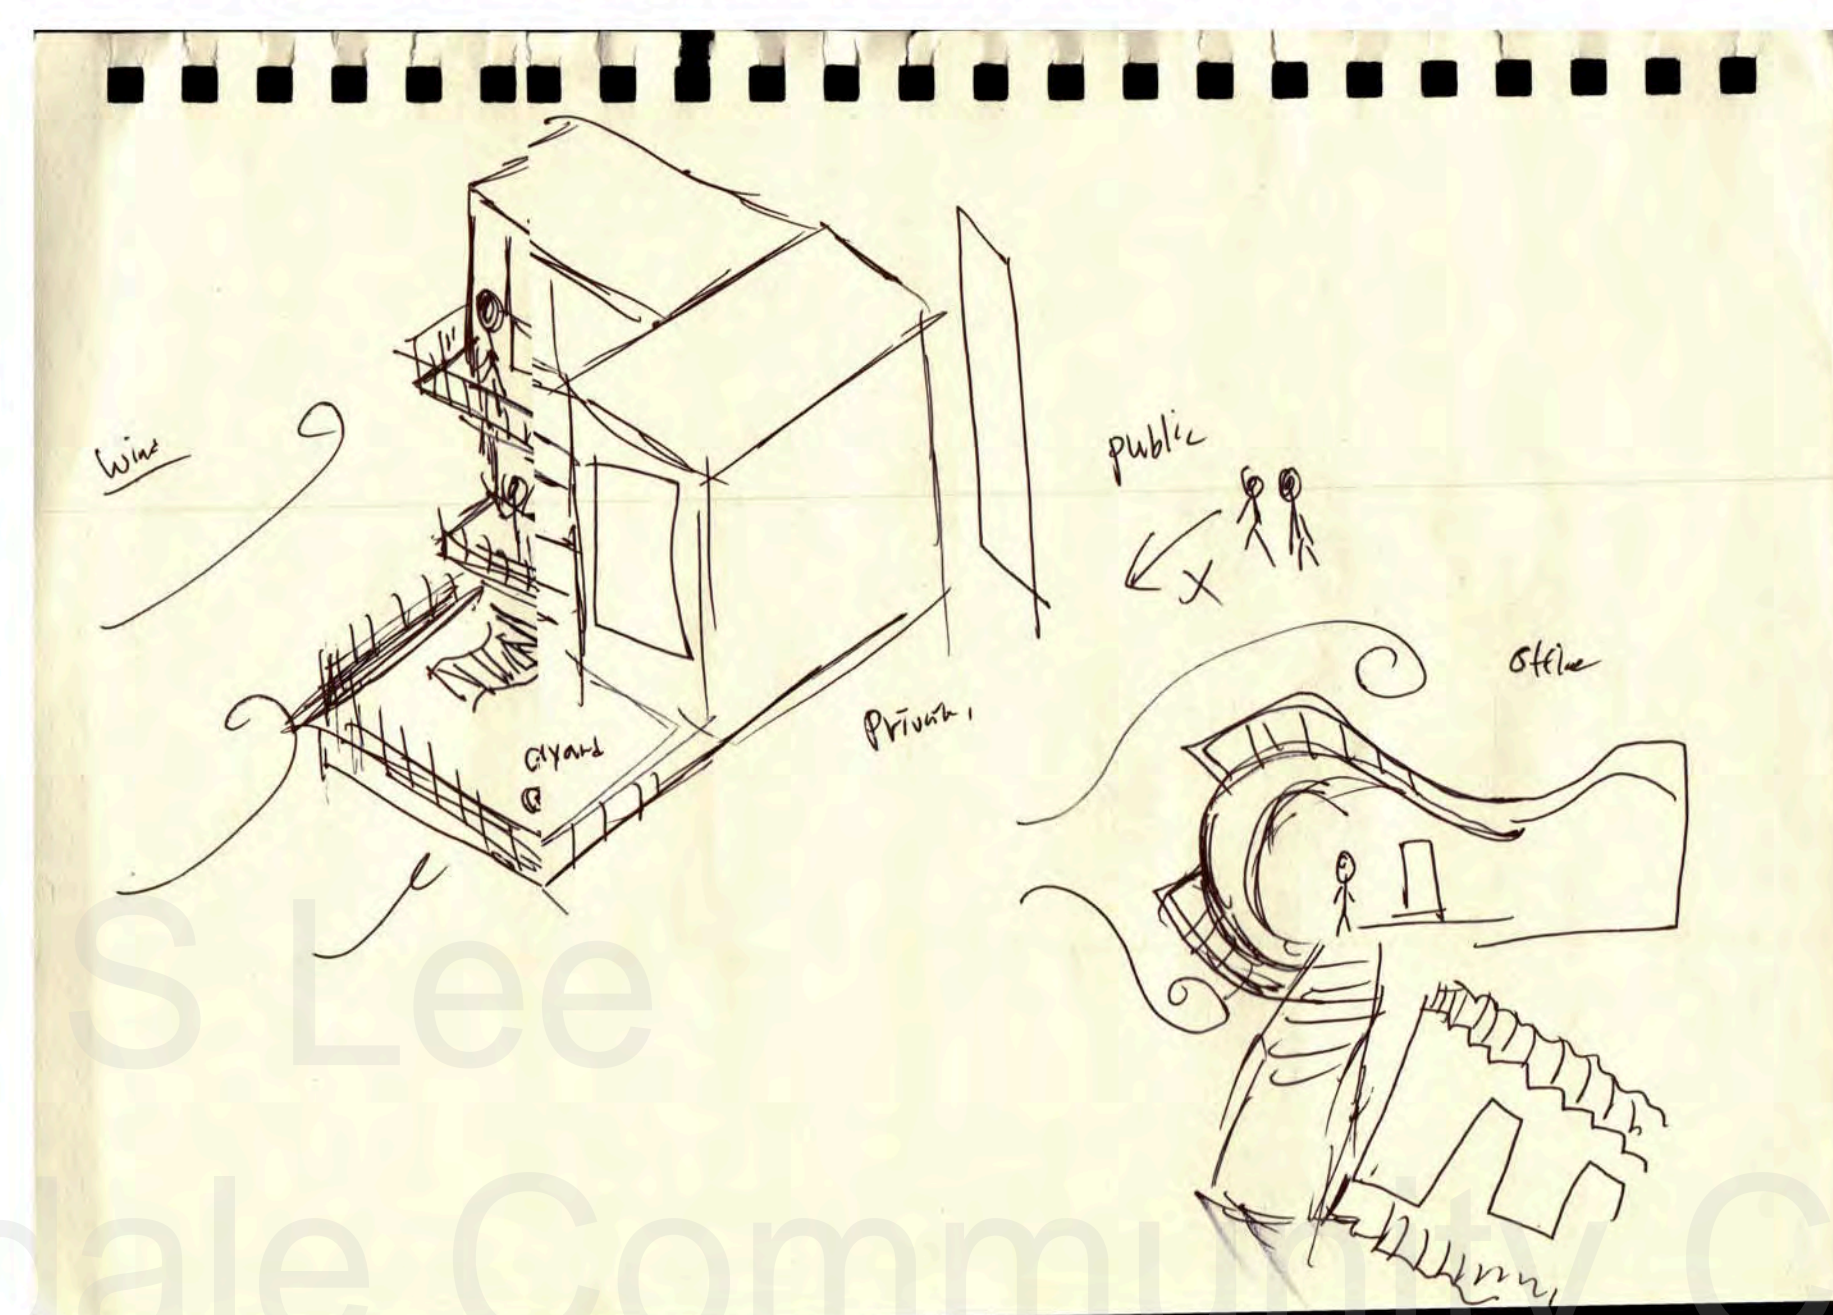 Wind
public
office
cryard
S Lee
dale Community C